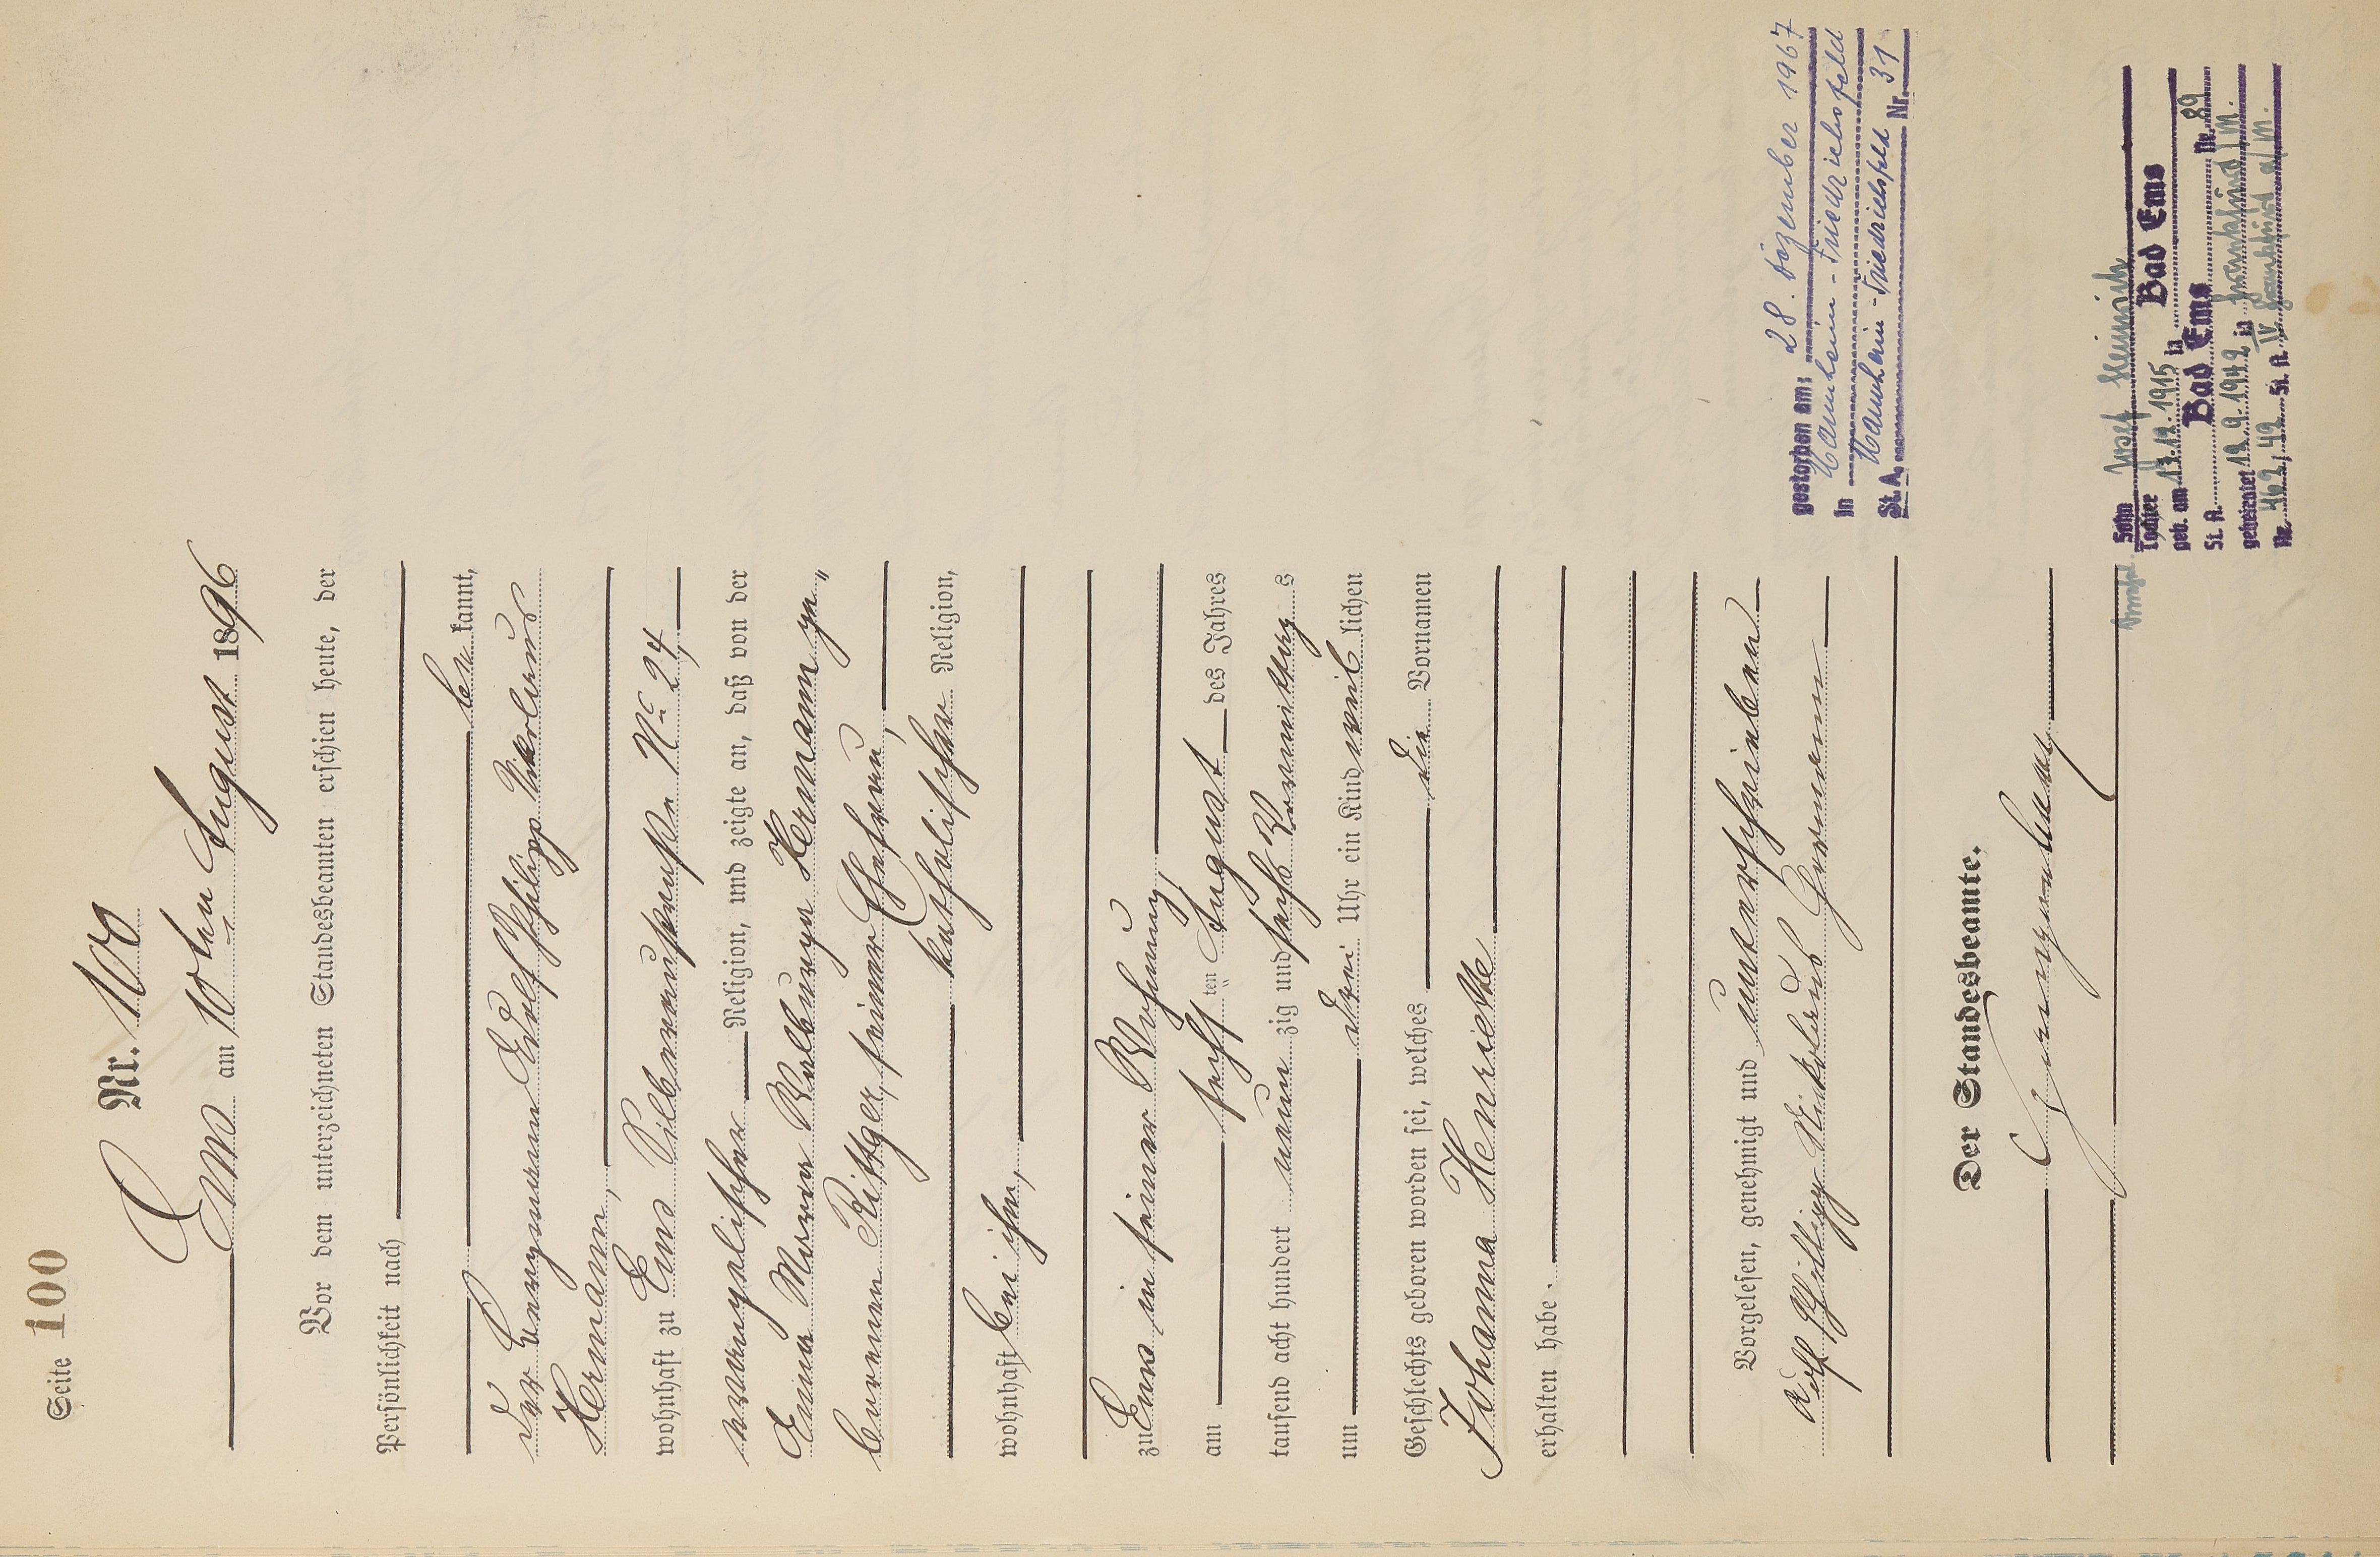 Seite 100
Nr. 100
Ems am 10ten August 1896
Vor dem unterzeichneten Standesbeamten erschien heute, der
Persönlichkeit nach
be kannt,
der Bergmann Adolf Philipp Nikolaus
Hermann,
wohnhaft zu Ems Silberaustraße No 24,
evangelischer Religion, und zeigte an, daß von der
Anna Maria Walburga Hermann ge-
borenen Rittger, seiner Ehefrau,
katholischer Religion,
wohnhaft bei ihm,
zu Ems in seiner Wohnung,
am sechs ten August des Jahres
tausend acht hundert neun zig und sechs Vormittag s
um drei Uhr ein Kind weib lichen
Geschlechts geboren worden sei, welches die Vornamen
Johanna Henriette
erhalten habe.
Vorgelesen, genehmigt und unterschrieben
Adolf Philipp Nikolaus Hermann
Der Standesbeamte.
gestorben am: 28. Dezember 1967
in Mannheim-Friedrichsfeld
St.A. Mannheim-Friedrichsfeld Nr. 31
Sohn Josef Heinrich
Tochter
geb. am 13.12.1915 in Bad Ems
St. A. Bad Ems Nr. 89
geheiratet 12.9.1942 in Frankfurt/M.
Nr. 462/42 St. A. IV Frankfurt a/M.